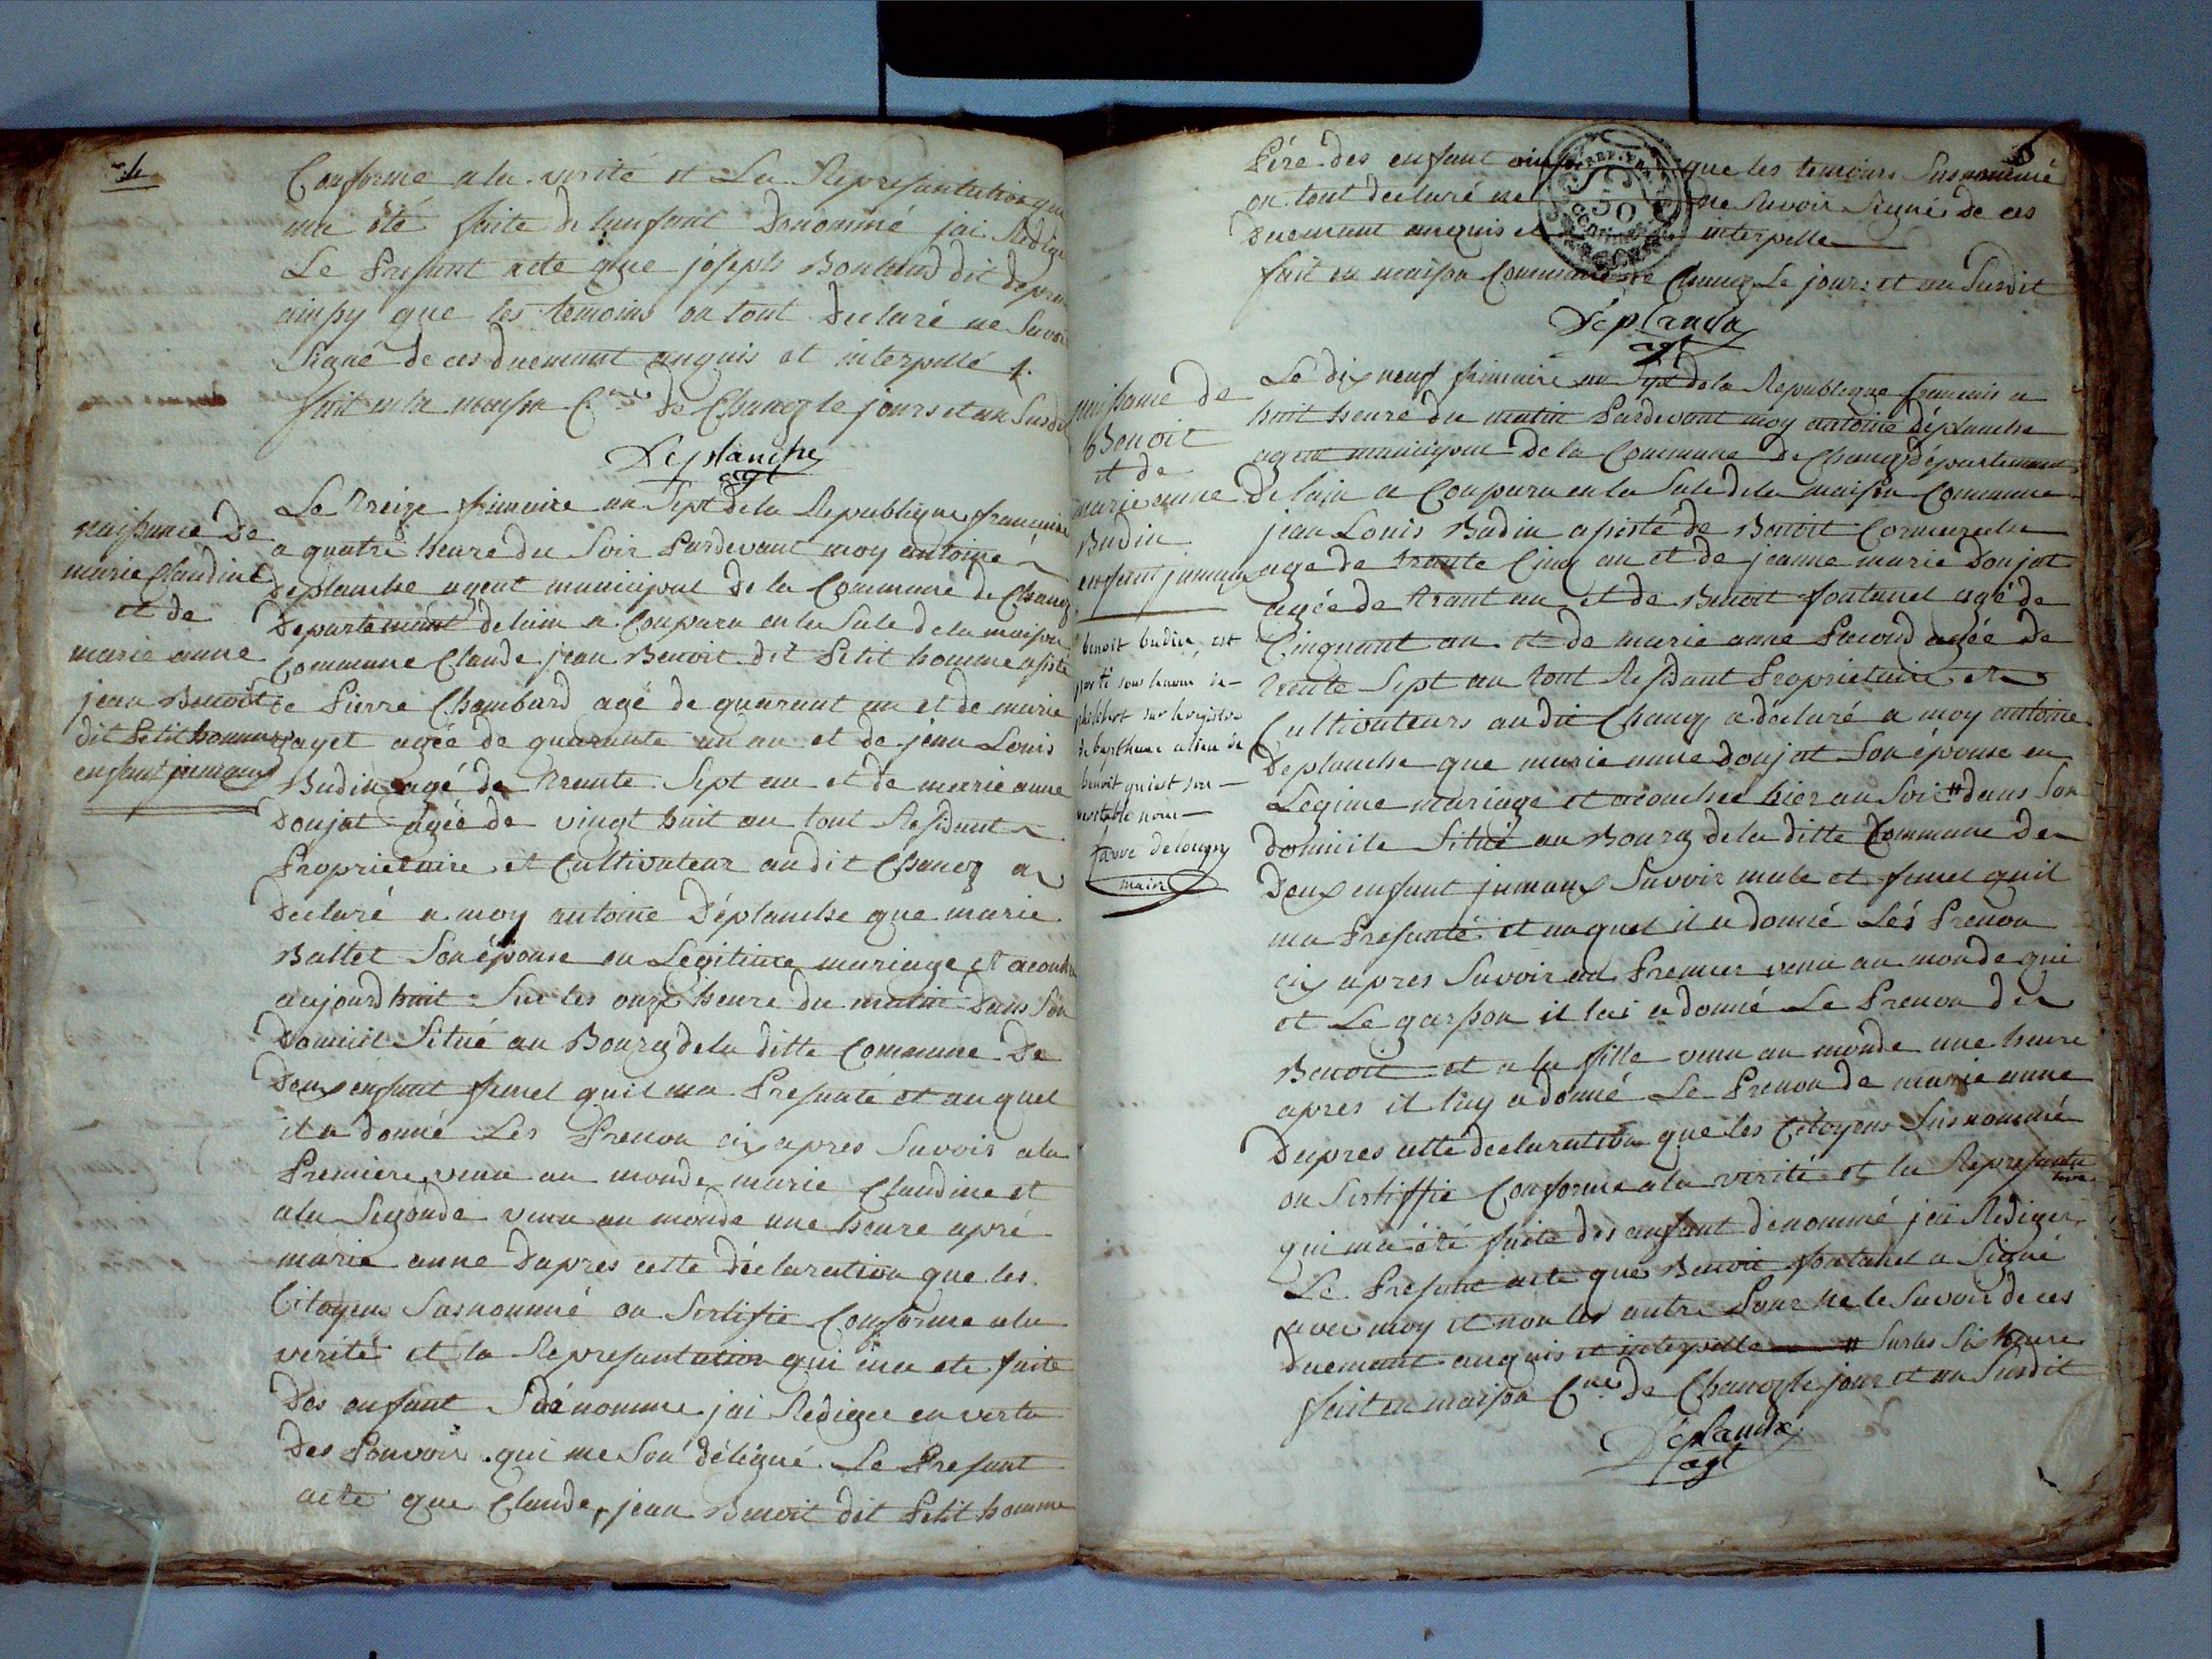 4
Conforme ala verité et La Represantation qui
ma été faite de lenfant Denommé jai Redige
Le Presant acte que joseph Bon dit
ainsy que les temoins on tout Declaré ne Savoir
Signé de ces duemant anquis et interpellé
fait en la maison Cne de Chanoz le jours et an Susdit
Déplanche
agt
naissance De
marie Claudine
et de
marie anne
jean Benoit
dit Petit homme
enfant jumaux
Le Treize frimaire an Sept de la Republique francaise
a quatre heure du Soir Pardevant moy antoine
Deplanche agent municipal de la Commune de Chanoz
Departemant de lain a Comparu en la Sale de la maison
Commune Claude jean Benoit dit Petit homme asisté
de Pierre Chambard agé de quarant an et de marie
gayet agée de quarante un an et de jean Louis
Budin agé de Trente Sept an et de marie anne
Donjat agée de vingt huit an tout Residant
Proprietaire et Cultivateur audit Chanoz a
Declaré a moy antoine Déplanche que marie
Battet Son épouse en Legitime mariage et acouché
aujourdhuit Sur les onze heure du matin Dans Son
Domicil Situé au Bourg de la ditte Commune De
Deux enfant femel quil ma Presanté et auquel
il a donné Les Prenon cix apres Savoir ala
Premiere venu au monde marie Claudine et
ala Segonde venu au monde une heure apré
marie anne Dapres cette déclaration que les
Citoyens Susnommé on Sertifie Conforme ala
verité et la Represantation qui ma ete faite
Des enfant dénomme jai Rediger en vertu
Des Pouvoir qui me Son délégué Le Presant
acte que Claude jean Benoit dit Petit homme
Pére des enfant ainsy que les temoins Susnommé
on tout declaré ne Savoir Signé de ces
Duemant anquis et interpelle
fait en maison Commune de Chanoz Le jours et an Susdit
Déplanche
agt
REP. FRA
50
naissance de
Benoit
et de
marie anne
Budin
enfant jumaux
benoit budin est
porté sous lenom de
philibert sur le registre
de baptheme alieu de
benoit qui est son
veritable nom
favre de longry
maire
Le dix neuf frimaire an Sept de la Republique francais a
huit heure du matin Pardevant moy antoine déplanche
agent municipal De la Commune De Chanoz département
De lain a Comparu en la Sale de la maison Commune
jean Louis Budin asisté de Benoit Cormareche
age de trante Cinq an et de jeanne marie Donjat
agée de trant an et de Benoit fontanel agé de
Cinquant an et de marie anne Pacoud agée de
trente Sept an tout Residant Proprietaire et
Cultivateurs audit Chanoz a déclaré a moy antoine
Deplanche que marie anne donjat Son épouse en
Légime mariage et acouchee hier au Soir # dans Son
domicile Situé au Bourg de la ditte Commune De
Deux enfant jumaux Savoir male et femel quil
ma Presanté et auquel il a donné Lés Prenon
cix apres Savoir au Premier venu au monde qui
et Le garson il lui a donné Le Prenon de
Benoit et a la fille venu au monde une heure
apres il luy a donné Le Prenon de marie anne
Dapres cette declaration que les Citoyens Susnommé
on Sertiffie Conforme ala verité et la Represanta
tion
qui ma été faite des enfant dénommé jai Rediger
Le Presant acte que Benoit fontanel a Signé
avec moy et non les autre Pour ne le Savoir de ces
Duemant anquis et interpelle # Sur les Six heure
fait en maison Cne de Chanoz le jour et an Susdit
Déplanche
agt